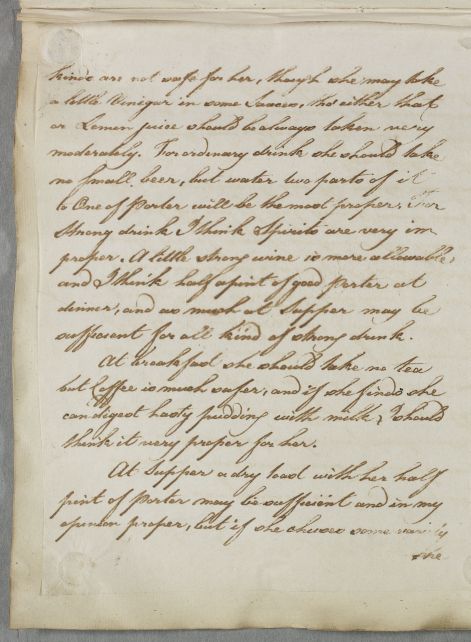 kinds are not safe for her, though she may take
a little Vinegar in some Sauces, tho either that
or Lemon juice should be always taken very
moderately. For ordinary drink she should take
no small beer, but water two parts of it
to One of Porter will be the most proper. For
Strong drink I think Spirits are very im
proper. A little strong wine is more allowable,
and I think half a pint of good Porter at
dinner, and as much at Supper may be
sufficient for all kind of strong drink.
At breakfast she should take no tea
but Coffee is much safer, and if she finds she
can digest hasty pudding with milk, I should
think it very proper for her.
At Supper a dry toast with her half
pint of Porter may be sufficient and in my
opinion proper, but if she chuses some variety
she